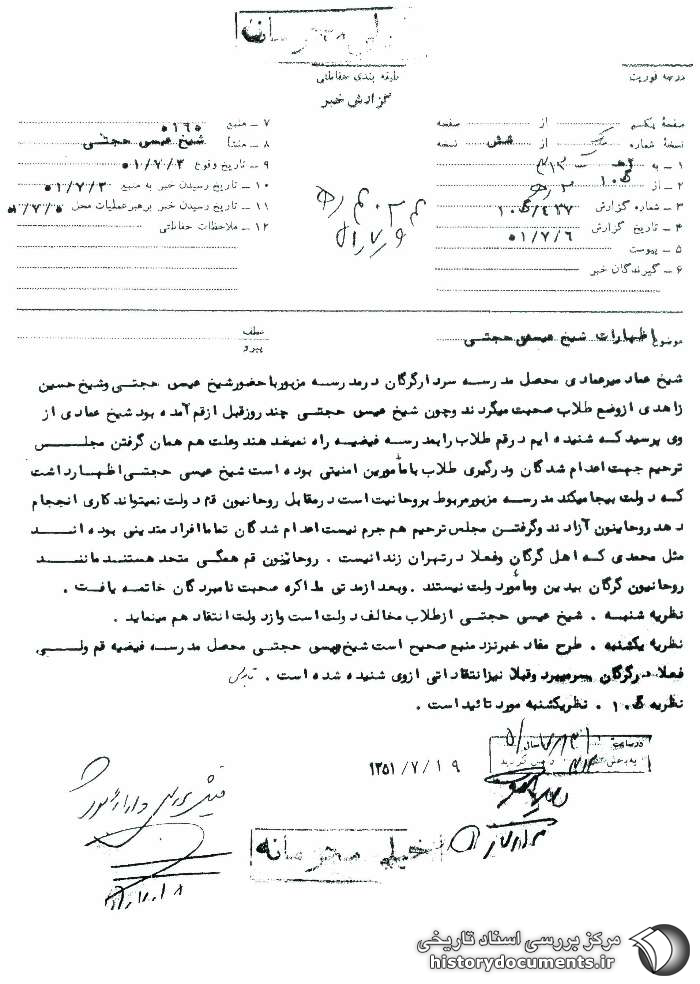 خیلی محرمانه
طبقه بندی حفاظتی
درجه فوریت
گزارش خبر
صفحهٔ یکم از صفحه
نسخهٔ شماره از شش نسخه
۱ – به ۳۱۲
۲ – از
۳ – شماره گزارش
۴ – تاریخ گزارش ۵۱/۷/۶
۵ – پیوست
۶ – گیرندگان خبر
۷ – منبع ۵۱۶۵
۸ – منشأ شیخ عیسی حجتی
۹ – تاریخ وقوع ۵۱/۷/۲
۱۰ – تاریخ رسیدن خبر به منبع ۵۱/۷/۲
۱۱ – تاریخ رسیدن خبر برهبر عملیات محل ۵۱/۷/۵
۱۲ – ملاحظات حفاظتی
موضوع اظهارات شیخ عیسی حجتی
عطف
پیرو
شیخ عماد میرعمادی محصل مدرسه سردار گرگان درمدرسه مزبور با حضور شیخ عیسی حجتی وشیخ حسین
زاهدی ازوضع طلاب صحبت میگردند وچون شیخ عیسی حجتی چند روزقبل ازقم آمده بود شیخ عمادی از
وی پرسید که شنیده ایم درقم طلاب رابمدرسه فیضیه راه نمیدهند وعلت هم همان گرفتن مجلس
ترحیم جهت اعدام شدگان ودرگیری طلاب بامأمورین امنیتی بوده است شیخ عیسی حجتی اظهارداشت
که دولت بیجا میکند مدرسه مزبور مربوط بروحانیت است درمقابل روحانیون قم دولت نمیتواند کاری انججام
دهد روحاینون آزادند وگرفتن مجلس ترحیم هم جرم نیست اعدام شدگان تماما افراد متدینی بوده اند
مثل محمدی که اهل گرگان وفعلا درتهران زندانیست . روحانیون قم همگی متحد هستند مانند
روحانیون گرگان بیدین ومأمور دولت نیستند . وبعد ازمدتی مذاکره صحبت نامبردگان خاتمه یافت .
نظریه شنبه . شیخ عیسی حجتی ازطلاب مخالف دولت است وازدولت انتقاد هم مینماید .
نظریه یکشنبه . طرح مفاد خبرنزد منبع صحیح است شیخ عیسی حجتی محصل مدرسه فیضیه قم ولی
فعلا درگرگان بسرمیبرد وقبلا نیزانتقاداتی ازوی شنیده شده است .
نظریه ۱۰ گ . نظریکشنبه مورد تائید است .
۱۳۵۱/۷/۱۹
خیلی محرمانه
مرکز بررسی اسناد تاریخی
historydocuments.ir